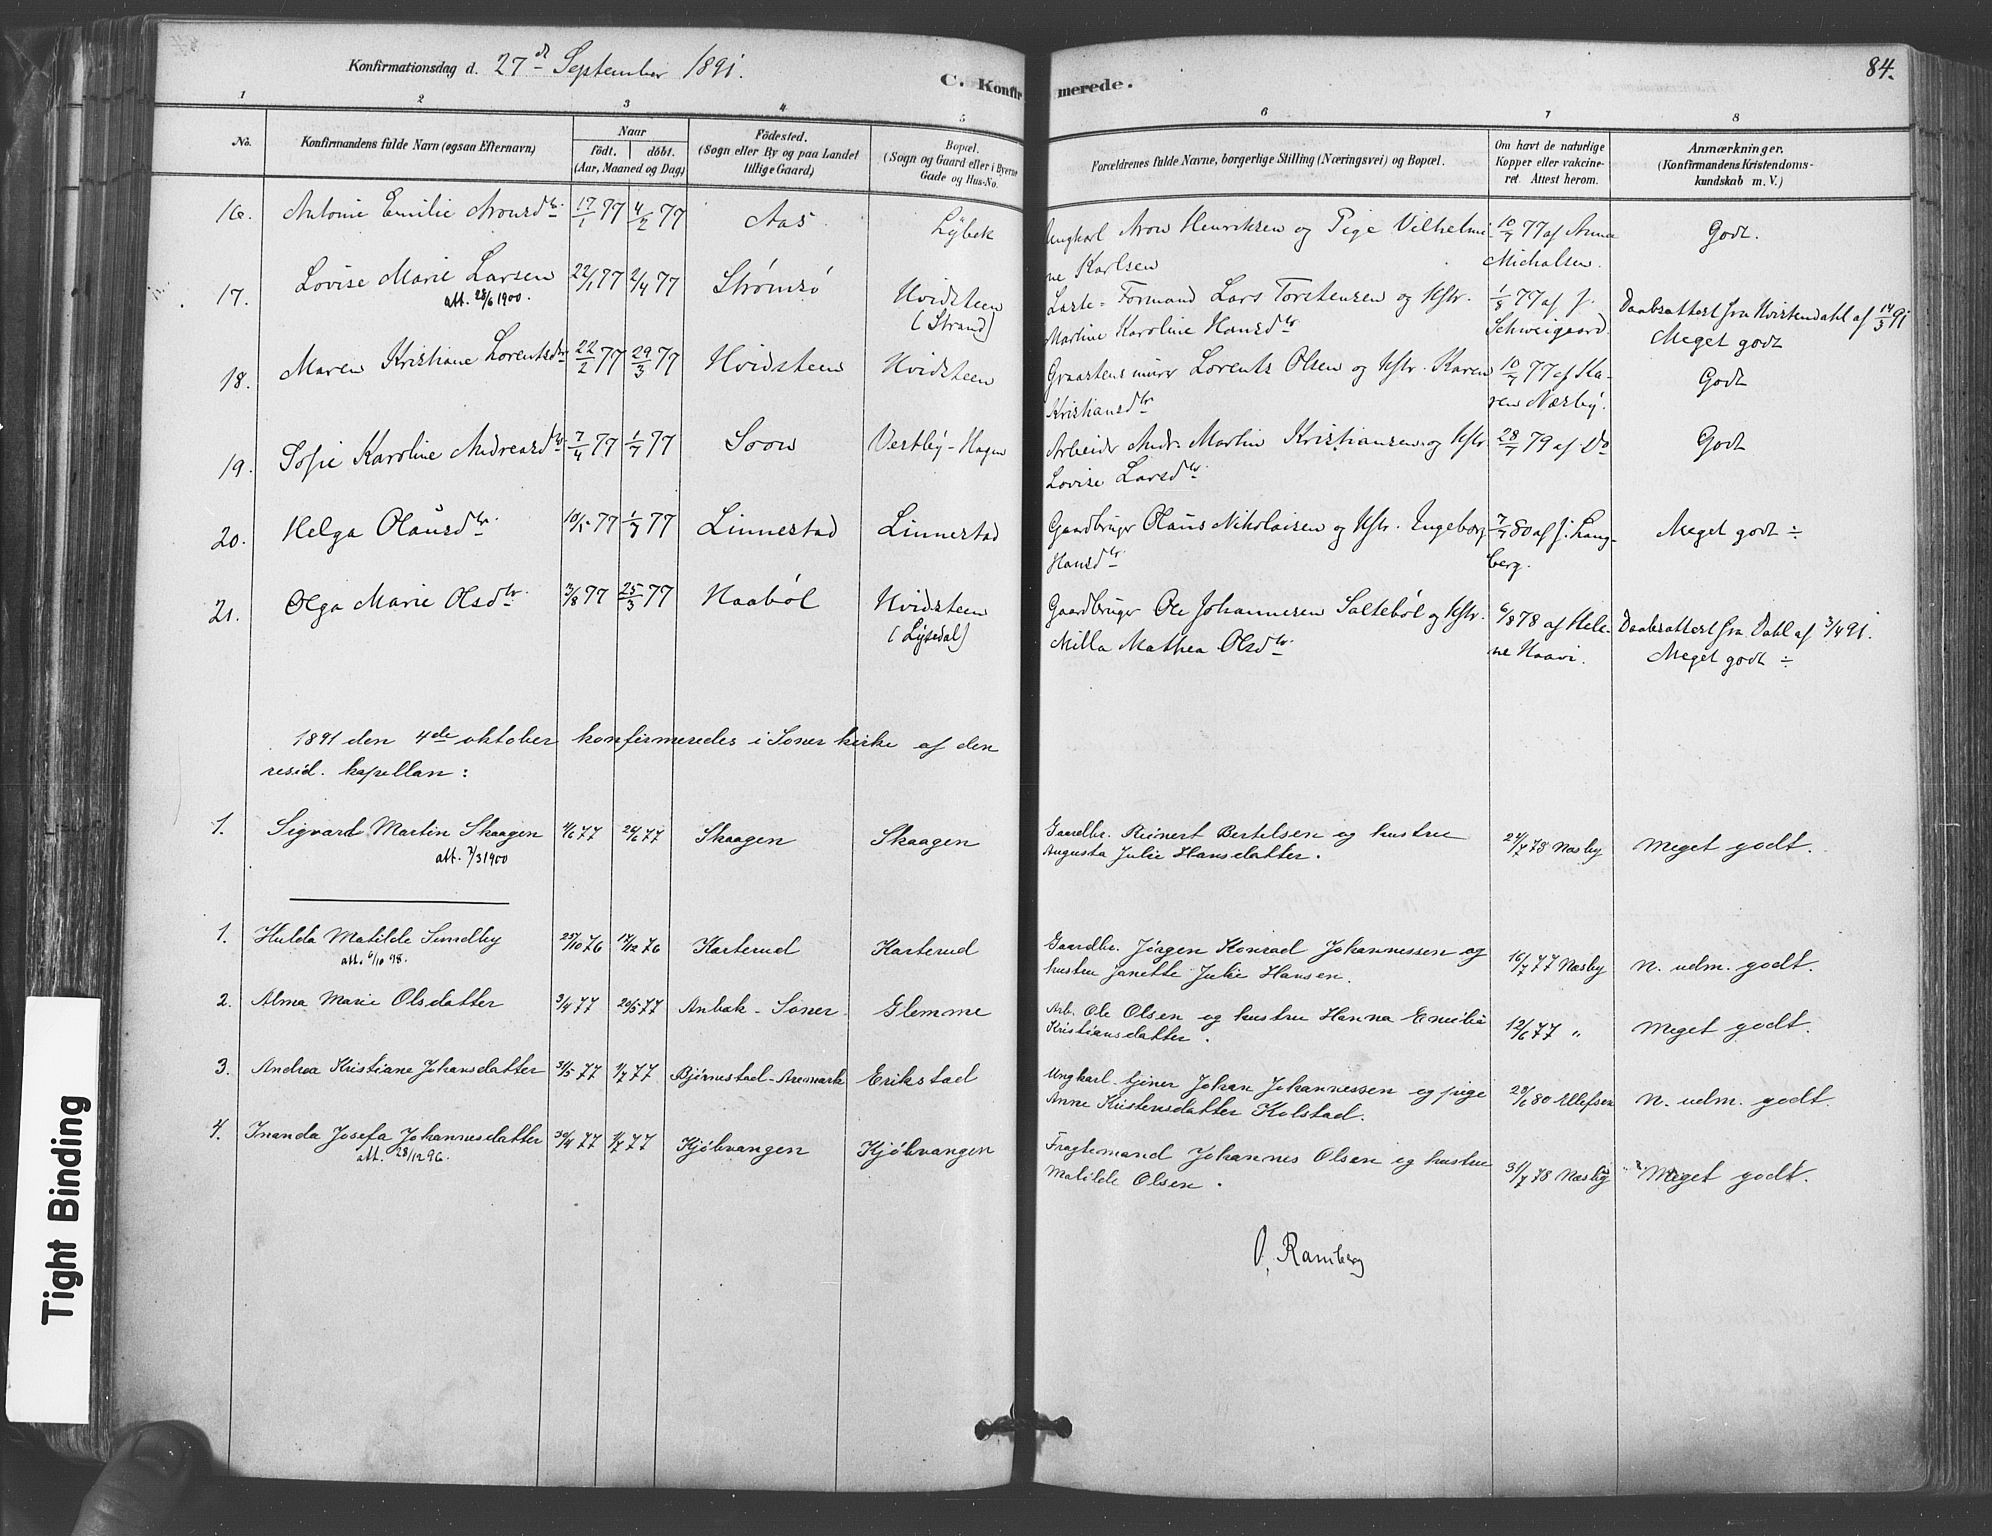 Konfirmationsdag d. 27de September 1891.
C. Konfirmerede.
84.
1 2 3 4 5 6 7 8
No.
Konfirmandens fulde Navn (ogsaa Efternavn)
Naar
födt. döbt.
(Aar, Maaned og Dag)
Födested.
(Sogn eller By og paa Landet
tillige Gaard)
Bopæl.
(Sogn og Gaard eller i Byerne
Gade og Hus-No.
Forældrenes fulde Navne, borgerlige Stilling (Næringsvei) og Bopæl.
Om havt de naturlige
Kopper eller vakcine-
ret. Attest herom.
Anmærkninger.
(Konfirmandens Kristendoms-
kundskab m. V.)
16. Antonie Emilie Aronsdtr. 17/1 77 4/2 77 Aas Lÿbek Ungkarl Aron Henriksen og Pige Vilhelmi- 10/7 77 af Anna Godt.
ne Karlsen Michalsen.
17. Lovise Marie Larsen 22/1 77 2/4 77 Strømsø Hvidsteen Laste-Formand Lars Torstensen og Hstr. 1/8 77 af J. Daabsattest fra Kvistendahl af 14/3 91
att. 28/6 1900. (Strand) Martine Karoline Hansdtr Schweigaard. Meget godt
18. Maren Kristiane Lorentsdtr 22/2 77 29/3 77 Hvidsteen Hvidsteen Graastensmurer Lorents Olsen og Hstr. Karen 10/7 77 af Ka- Godt
Kristiansdtr ren Næsbÿ.
19. Sofie Karoline Andreasdtr. 7/4 77 1/7 77 Soon Vestbÿ-Hagen Arbeider Andr. Martin Kristiansen og Hstr 28/7 79 af Do Godt
Lovise Larsdtr.
20. Helga Olausdtr. 10/5 77 1/7 77 Linnestad Linnestad Gaardbruger Olaus Nikolaisen og Hstr. Ingeborg 7/7 80 af J. Lang- Meget godt ÷
Hansdtr. berg.
21. Olga Marie Olsdtr. 3/8 77 25/3 77 Haabøl Hvidsteen Gaardbruger Ole Johannesen Saltebøl og Hstr. 6/8 78 af Hele- Daabsattest fra Dahl af 3/4 91.
(Lÿsedal) Milla Mathea Olsdtr. ne Haavi. Meget godt ÷
1891 den 4de oktober konfirmeredes i Soner kirke af den
resid. kapellan:
1. Sigvard Martin Skaagen 1/6 77 24/6 77 Skaagen Skaagen Gaardbr. Reinert Bertelsen og hustru 24/7 78 Næsby Meget godt.
att. 7/3 1900 Augusta Julie Hansdatter.
1. Hulda Matilde Sundby 25/10 76 17/12 76 Karterud Karterud Gaardbr. Jørgen Konrad Johannessen og 16/7 77 Næsby N. udm. godt.
att. 6/10 98. hustru Janette Julie Hansen.
2. Alma Marie Olsdatter 3/4 77 20/5 77 Anbæk-Soner Glemme Arb. Ole Olsen og hustru Hanna Emilie 12/6 77 " Meget godt.
Kristiansdatter.
3. Andrea Kristiane Johansdatter 31/5 77 1/7 77 Bjørnestad-Aremark Erikstad Ungkarl-tjener Johan Johannessen og pige 29/6 80 Ellefsen N. udm. godt.
Anne Kristensdatter Kolstad.
4. Inanda Josefa Johannesdatter 30/4 77 1/7 77 Kjøvangen Kjøvangen Fragtemand Johannes Olsen og hustru 31/7 78 Næsby Meget godt.
att. 28/12 96. Matilde Olsen.
O. Ramberg
Tight Binding